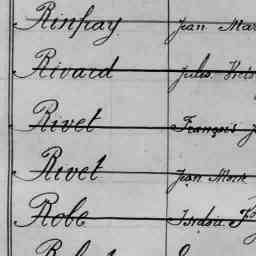 Rinfray Jean Mar
Rivard Jules
Rivet François J
Rivet Jean Marie
Robe Isidore